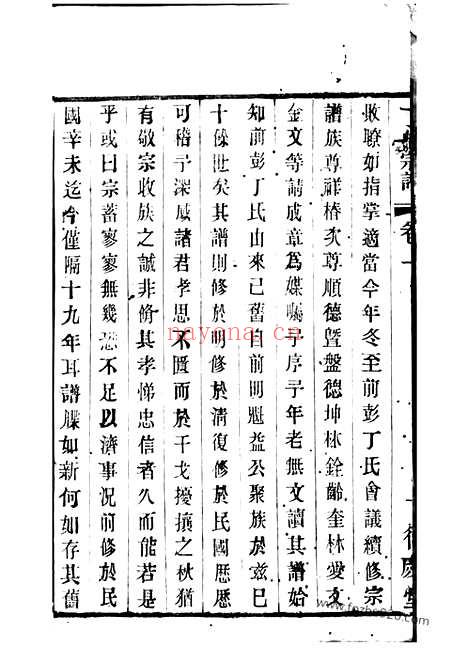 丁氏宗譜 卷一
敗瞭如指掌適當今年冬至前彭丁氏會議續修宗
譜族尊祥椿次尊順德暨盤德坤林銓齡奎林愛文
金文等請成章為媒囑予序予年老無文讀其譜始
知前彭丁氏由來已舊自前明魁益公聚族於茲已
十餘世矣其譜則修於明修於清復修於民國歷歷
可稽予深感諸君孝思不匱而於干戈擾攘之秋猶
有敬宗收族之誠非脩其孝悌忠信者久而能若是
乎或曰宗蓄寥寥無幾恐不足以濟事況前修於民
國辛未迄今僅隔十九年耳譜牒如新何如存其舊
nayona.cn